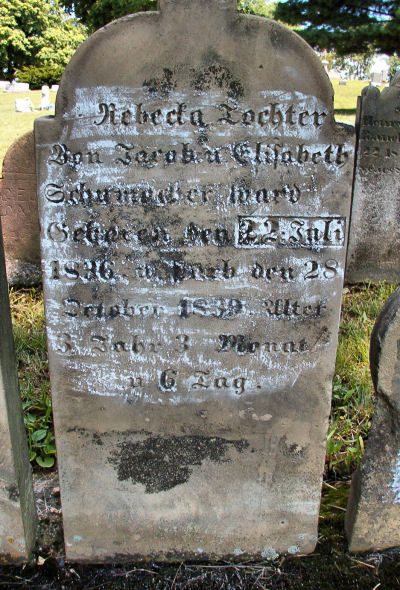 Rebecka Tochter
Von Jacob u Elisabeth
Schumacher ward
Geboren den 22 Juli
1836 u starb den 28
October 1839 Alter
3 Jahr 3 Monat
u 6 Tag.